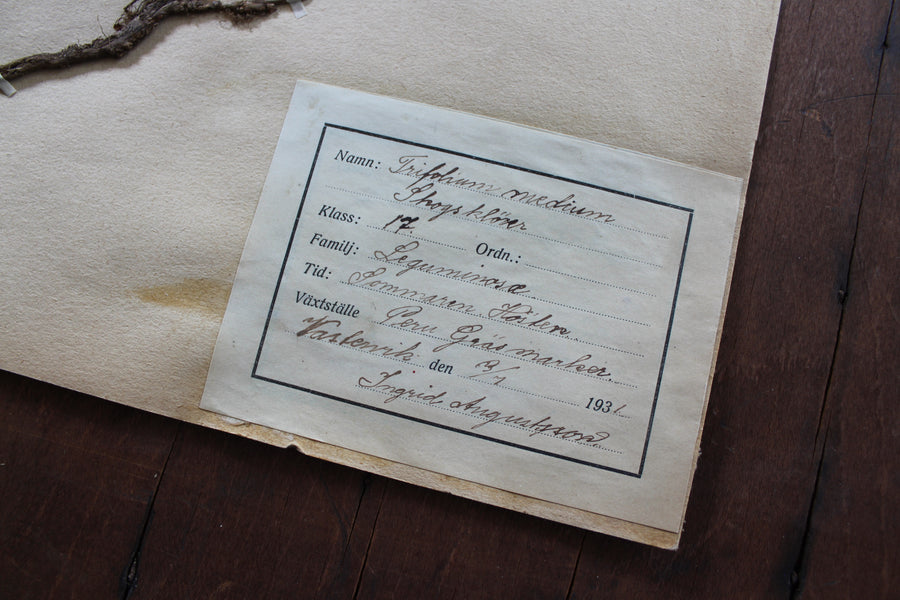 Namn: Trifolium medium
Skogsklöver
Klass: 17 Ordn.:
Familj: Leguminosæ
Tid: Sommaren Hösten
Växtställe Gräsmarker.
Västervik den 1931
Ingrid Augustsson